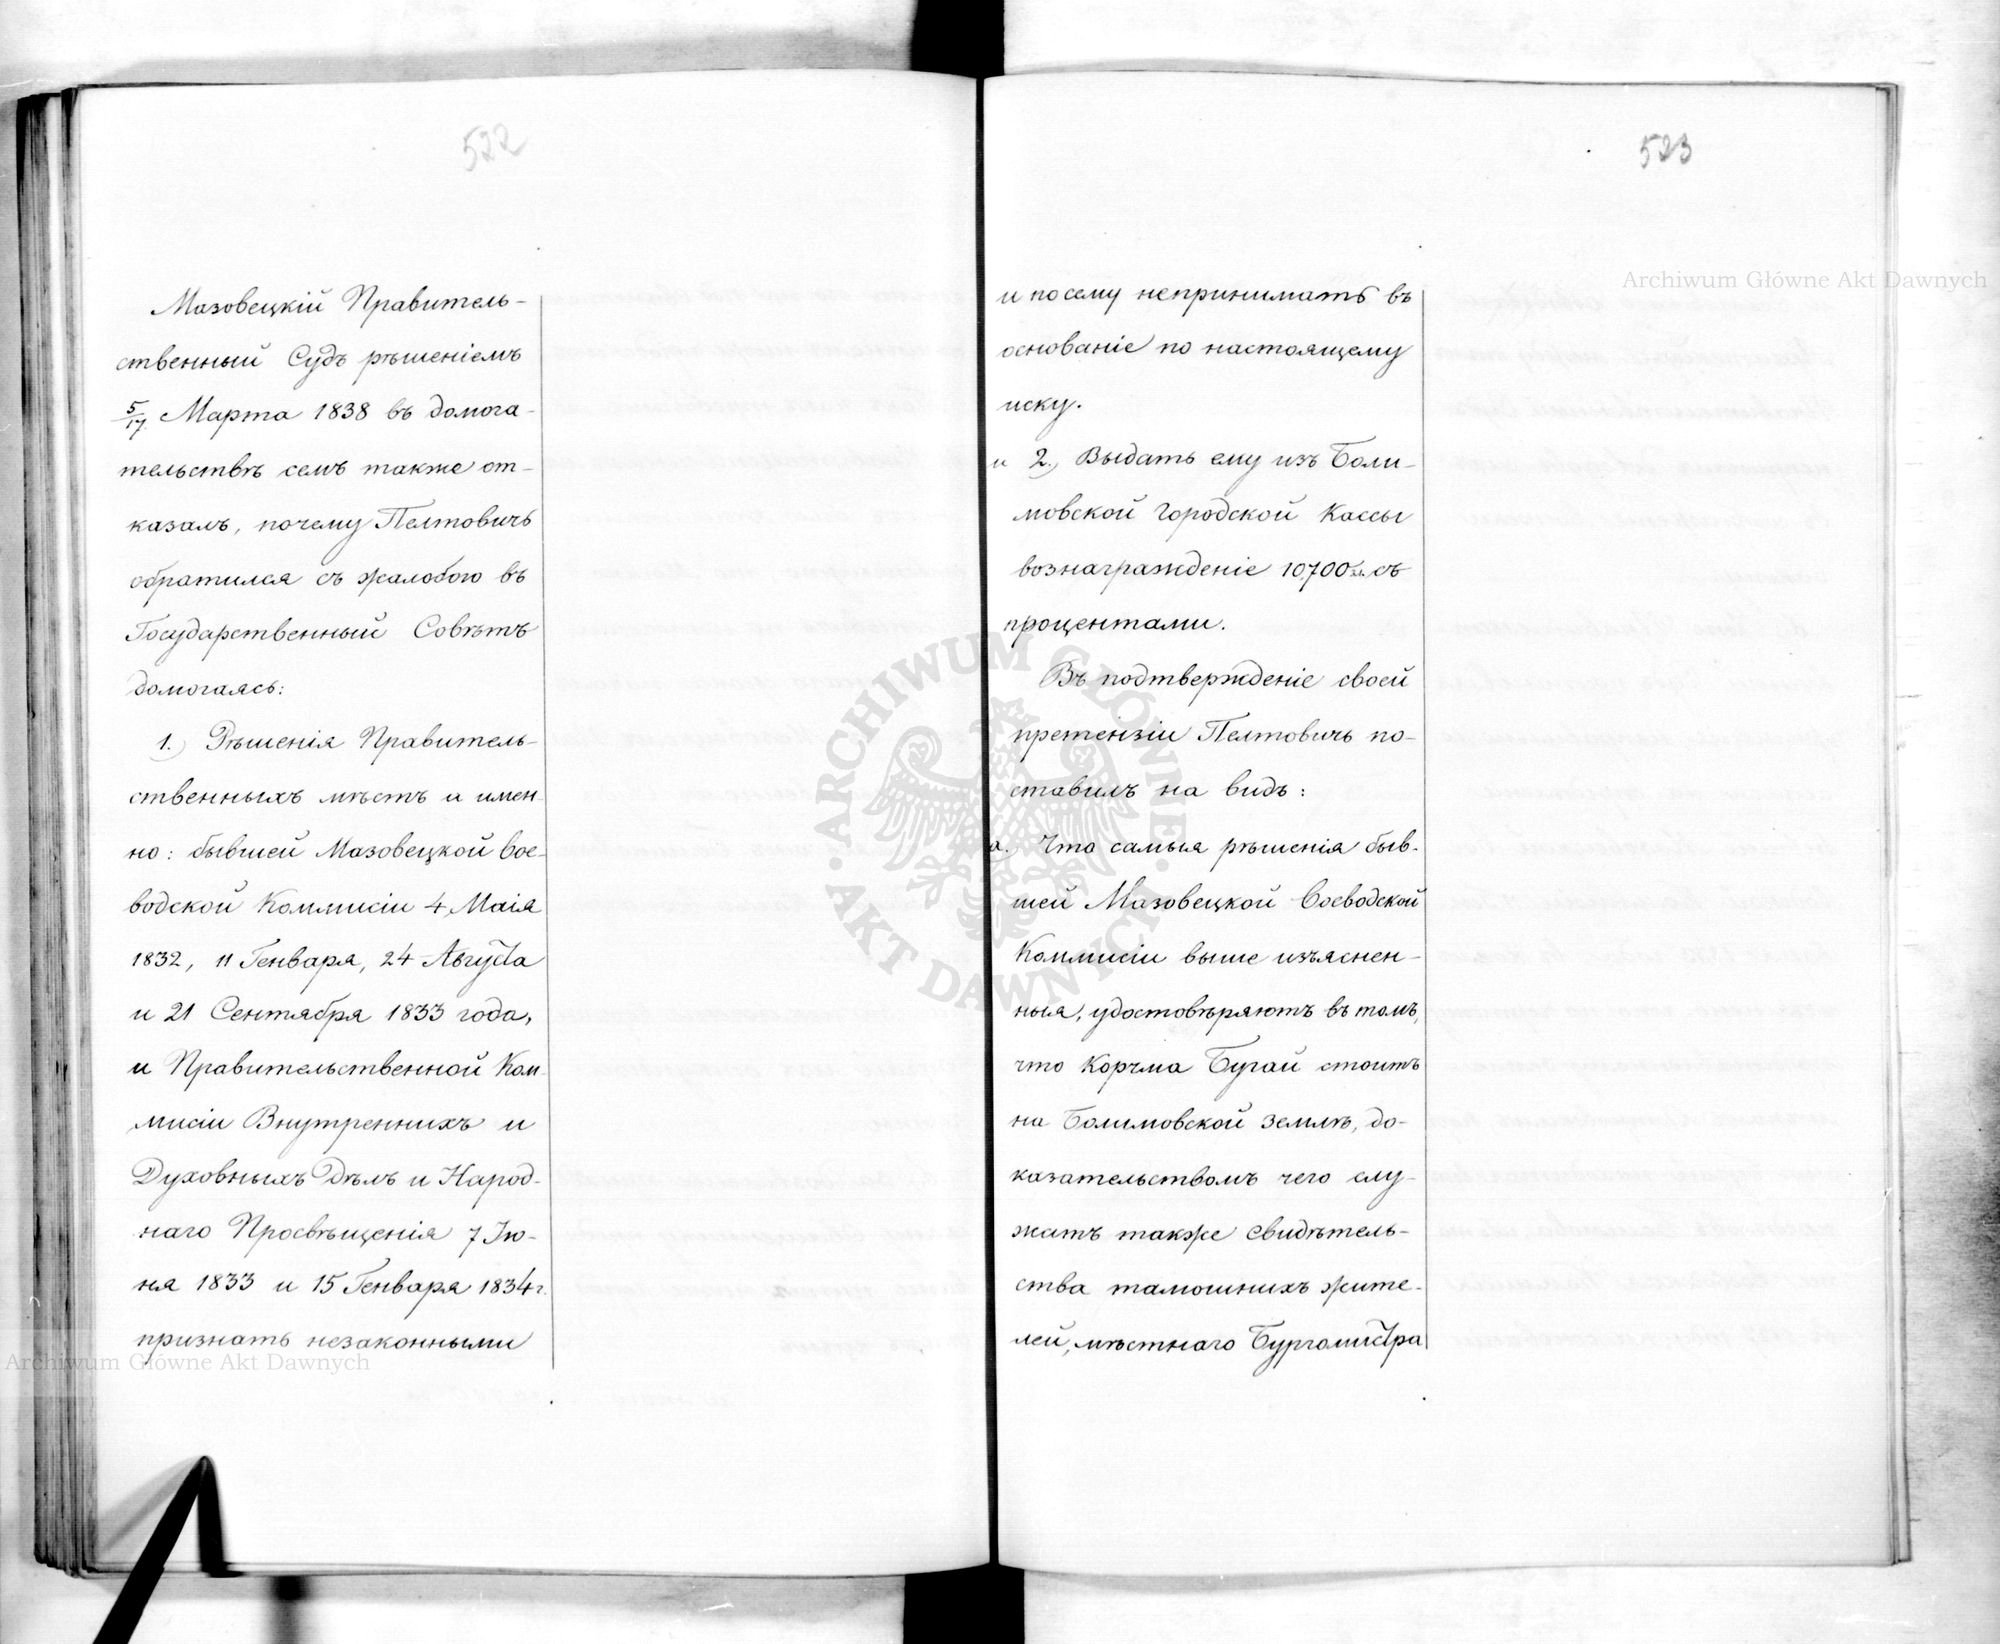 522
Мазовецкій Правитель-
ственный Судъ рѣшеніемъ
5/17. Марта 1838 въ домога-
тельствѣ семъ также от-
казалъ, почему Пелтовичъ
обратился съ жалобою въ
Государственный Совѣтъ
домогаясь:
1.) Рѣшенія Правитель-
ственныхъ мѣстъ и имен-
но: бывшей Мазовецкой Вое-
водской Коммисіи 4 Маія
1832, 11 Генваря, 24 Августа
и 21 Сентября 1833 года,
и Правительственной Ком-
мисіи Внутреннихъ и
Духовныхъ Дѣлъ и Народ-
наго Просвѣщенія 7 Ію-
ня 1833 и 15 Генваря 1834 г.
признать незаконными
523
и посему непринимать въ
основаніе по настоящему
иску.
и 2.) Выдать ему изъ Боли-
мовской Городской Кассы
вознагражденіе 10,700 зл. съ
процентами.
Въ подтвержденіе своей
претензіи Пелтовичъ по-
ставилъ на видъ:
а.) Что самыя рѣшенія быв-
шей Мазовецкой Воеводской
Коммисіи выше изъяснен-
ныя, удостовѣряютъ въ томъ,
что Корчма Бугай стоитъ
на Болимовской землѣ, до-
казательствомъ чего слу-
жатъ также свидѣтель-
ства тамошнихъ жите-
лей, мѣстнаго Бургомистра
Archiwum Główne Akt Dawnych
Archiwum Główne Akt Dawnych
ARCHIWUM GŁÓWNE AKT DAWNYCH